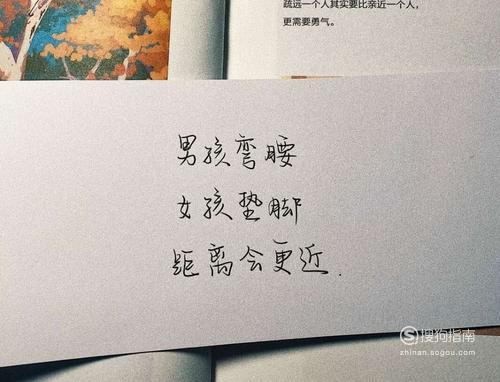 疏远一个人其实要比亲近一个人，
更需要勇气。
男孩弯腰
女孩垫脚
距离会更近.
S 搜狗指南
zhinan.sogou.com